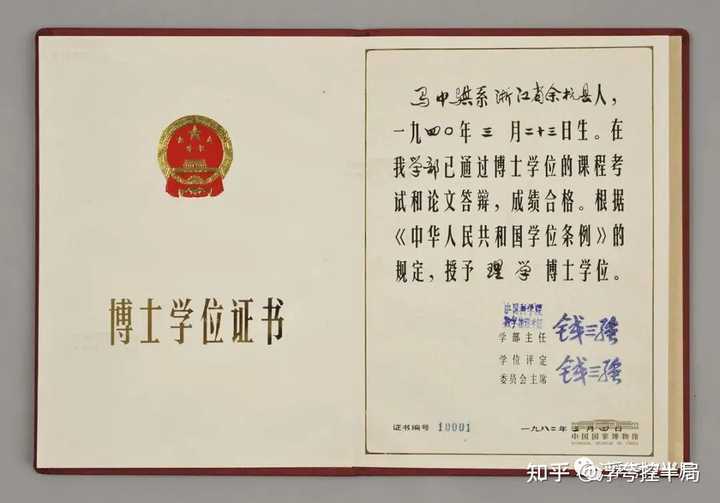 博士学位证书
马中骐系浙江省余杭县人，
一九四〇年三月二十三日生。在
我学部已通过博士学位的课程考
试和论文答辩，成绩合格。根据
《中华人民共和国学位条例》的
规定，授予理学博士学位。
中国科学院
数学物理学部
学部主任 钱三强
学位评定
委员会主席 钱三强
证书编号 10001
一九八二年三月四日
中国国家博物馆
NATIONAL MUSEUM OF CHINA
知乎 @浮夸挫半局